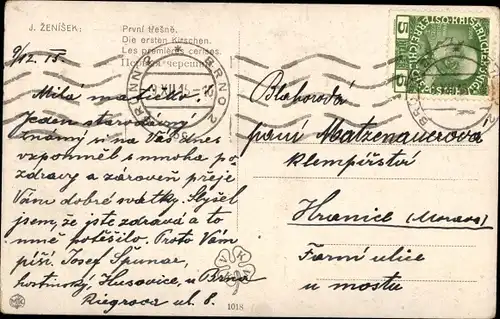 J. ŽENÍŠEK:
První třešně.
Die ersten Kirschen.
Les premières cerises.
Первыя черешни
9/12. 15.
Jeden starodávný
známý si na Vás dnes
vzpomněl s mnoha po-
zdravy a zároveň přeje
Vám dobré svátky. Slyšel
jsem, že jste zdravá a to
mne potěšilo. Proto Vám
píši. Josef Spunar,
hostinský, Husovice, u Brna
Riegrova ul. 8.
BRÜNN 2 * BRNO 2
9.XII.15
5 5
Blahorodá
paní Matzenauerová
klempířství
Hranice (Morava)
Farní ulice
u mostu
MK
VKKV
1018